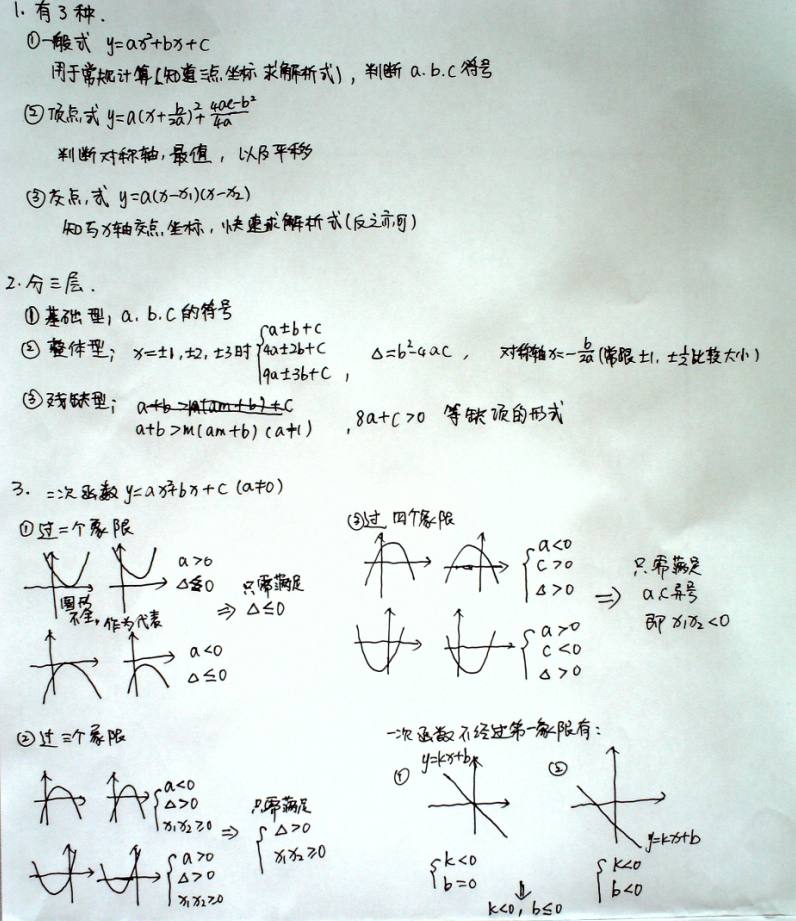 1. 有3种.
①一般式 y=ax²+bx+c
用于常规计算(知道三点坐标求解析式), 判断 a.b.c符号
②顶点式 y=a(x+b/2a)²+4ac-b²/4a
判断对称轴,最值, 以及平移
③交点式 y=a(x-x₁)(x-x₂)
知与x轴交点坐标, 快速求解析式(反之亦可)
2. 分三层.
①基础型; a.b.c的符号
②整体型; x=±1,±2,±3时 { a±b+c
4a±2b+c
9a±3b+c , Δ=b²-4ac, 对称轴x=-b/2a(常跟±1, ±1/2比较大小)
③残缺型; a+b>m(am+b)+c
a+b>m(am+b) (a≠1) , 8a+c>0 等缺项的形式
3. 二次函数y=ax²+bx+c (a≠0)
①过二个象限
a>0
Δ≤0
图形不全,作为代表
a<0
Δ≤0
⇒ 只需满足
Δ≤0
②过三个象限
{ a<0
Δ>0
x₁x₂≥0
{ a>0
Δ>0
x₁x₂≥0
⇒ 只需满足
{ Δ>0
x₁x₂≥0
③过四个象限
{ a<0
c>0
Δ>0
{ a>0
c<0
Δ>0
⇒ 只需满足
a,c异号
即 x₁x₂<0
一次函数不经过第一象限有:
① y=kx+b
{ k<0
b=0
② y=kx+b
{ k<0
b<0
⇓
k<0, b≤0